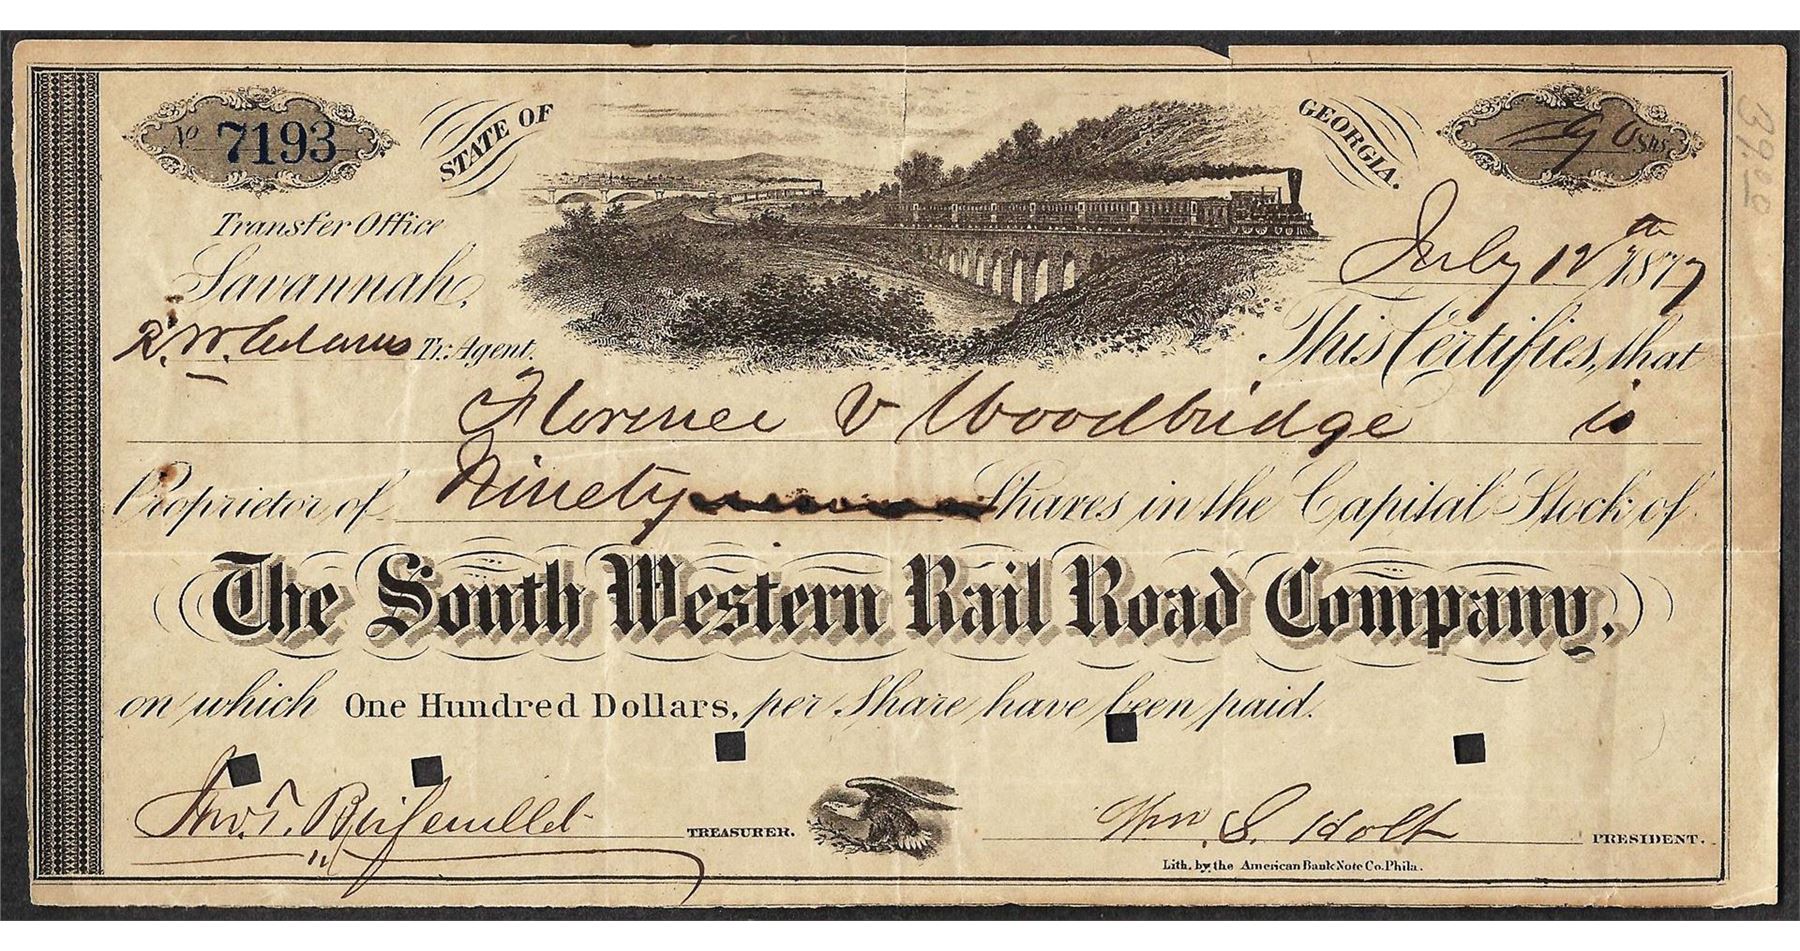 No 7193
STATE OF GEORGIA.
90 Shs.
39.00
Transfer Office
Savannah,
July 12th 1877
R. W. Adams Tr: Agent.
This Certifies, that
Florence V Woodbridge is
Proprietor of Ninety Shares in the Capital Stock of
The South Western Rail Road Company,
on which One Hundred Dollars, per Share have been paid.
Jno. T. Boifeuillet TREASURER.
Wm. S. Holt PRESIDENT.
Lith. by the American Bank Note Co. Phila.